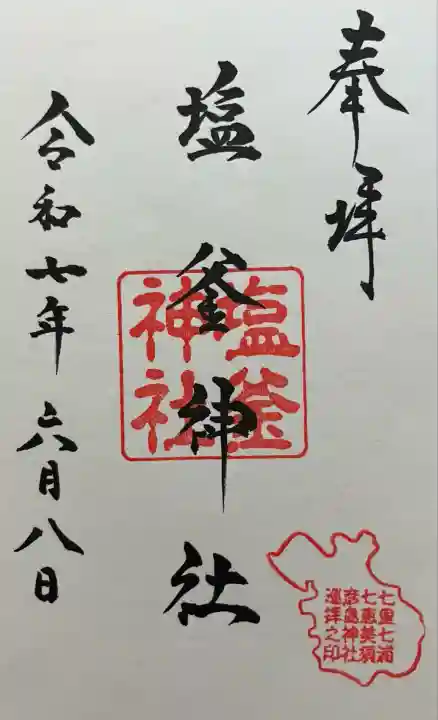 奉拝
塩釜神社
令和七年六月八日
塩釜
神社
七里七浦
七恵美須
彦島神社
巡拝之印